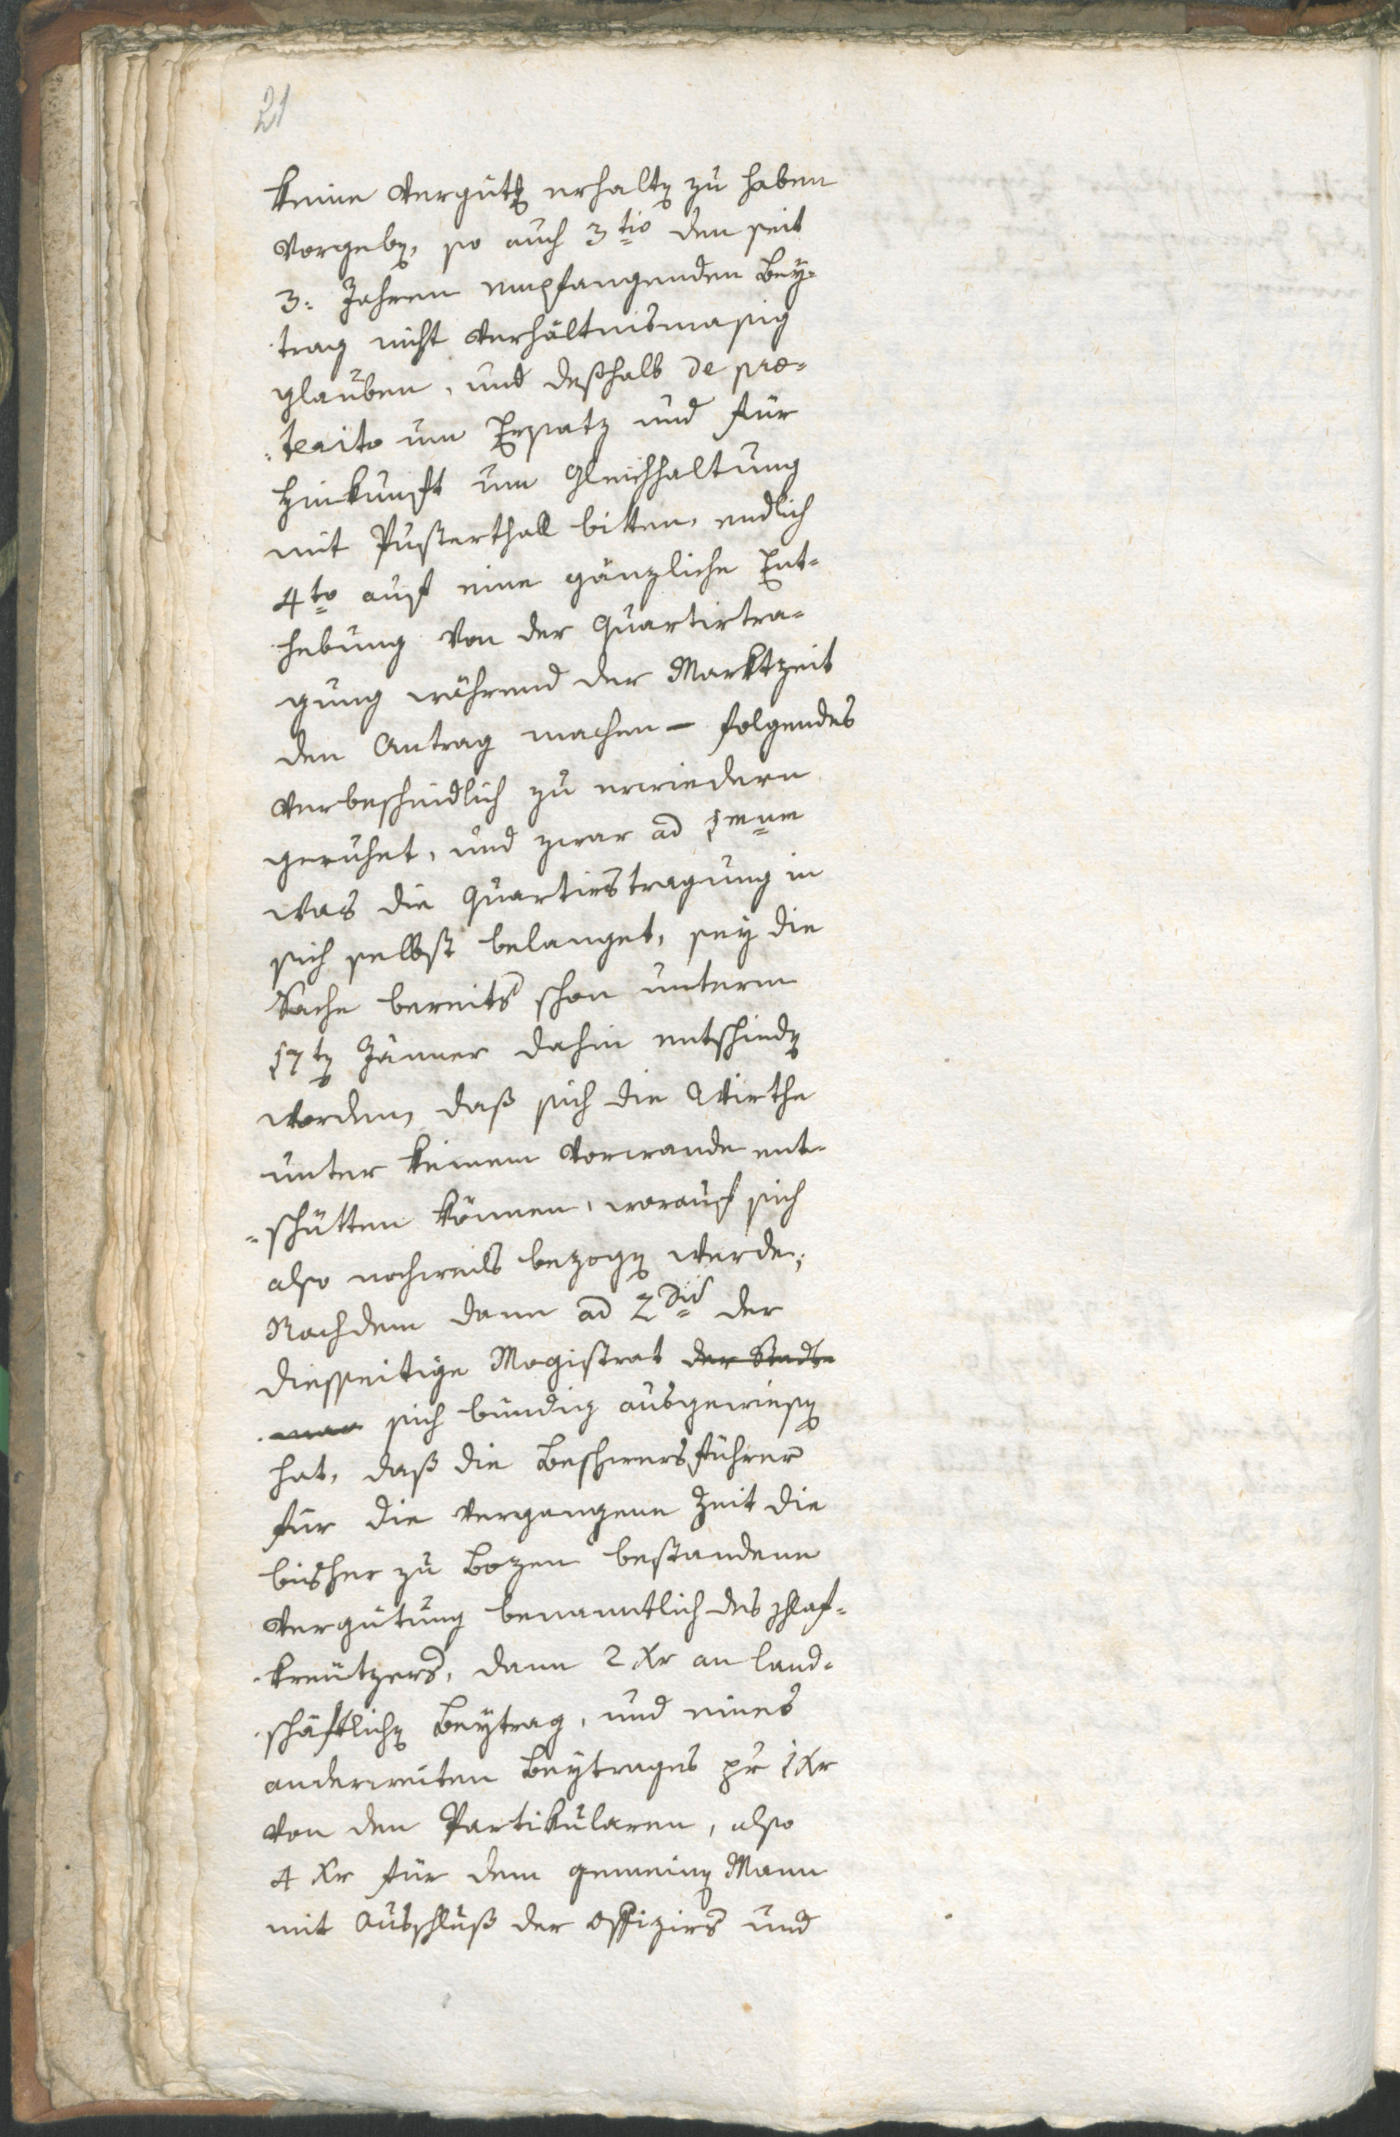 21
keine Vergüt[un]g erhalten zu haben
vorgeben, so auch 3tio den seit
3: Jahren empfangenden Bey=
trag nicht verhältnismasig
glauben, und deßhalb de præ=
=terito um Ersatz und für
Hinkunft um Gleichhaltung
mit Pusterthall bitten, endlich
4to auf eine gänzliche Ent=
hebung von der Quartirtra=
gung während der Marktzeit
den Antrag machen – folgendes
verbescheidlich zu erwiedern
geruhet, und zwar ad 1mum
was die Quartirstragung in
sich selbst belanget, sey die
Sache bereits schon unterm
17ten Jänner dahin entschieden
worden, daß sich die Wirthe
unter keinem Vorwande ent=
=schütten können, worauf sich
also nochmals bezogen werde,
Nachdem dann ad 2do der
diesseitige Magistrat der Stadt
sich bündig ausgewiesen
hat, daß die Beschwersführer
für die vergangene Zeit die
bisher zu Bozen bestandene
Vergütung benanntlich des Schlaf=
kreutzers, dann 2 Xr an land=
schäftlichen Beytrag, und eines
anderweiten Beytrages pr 1 Xr
von den Partikularen, also
4 Xr für dem gemeinen Mann
mit Ausschluß der Offizirs und